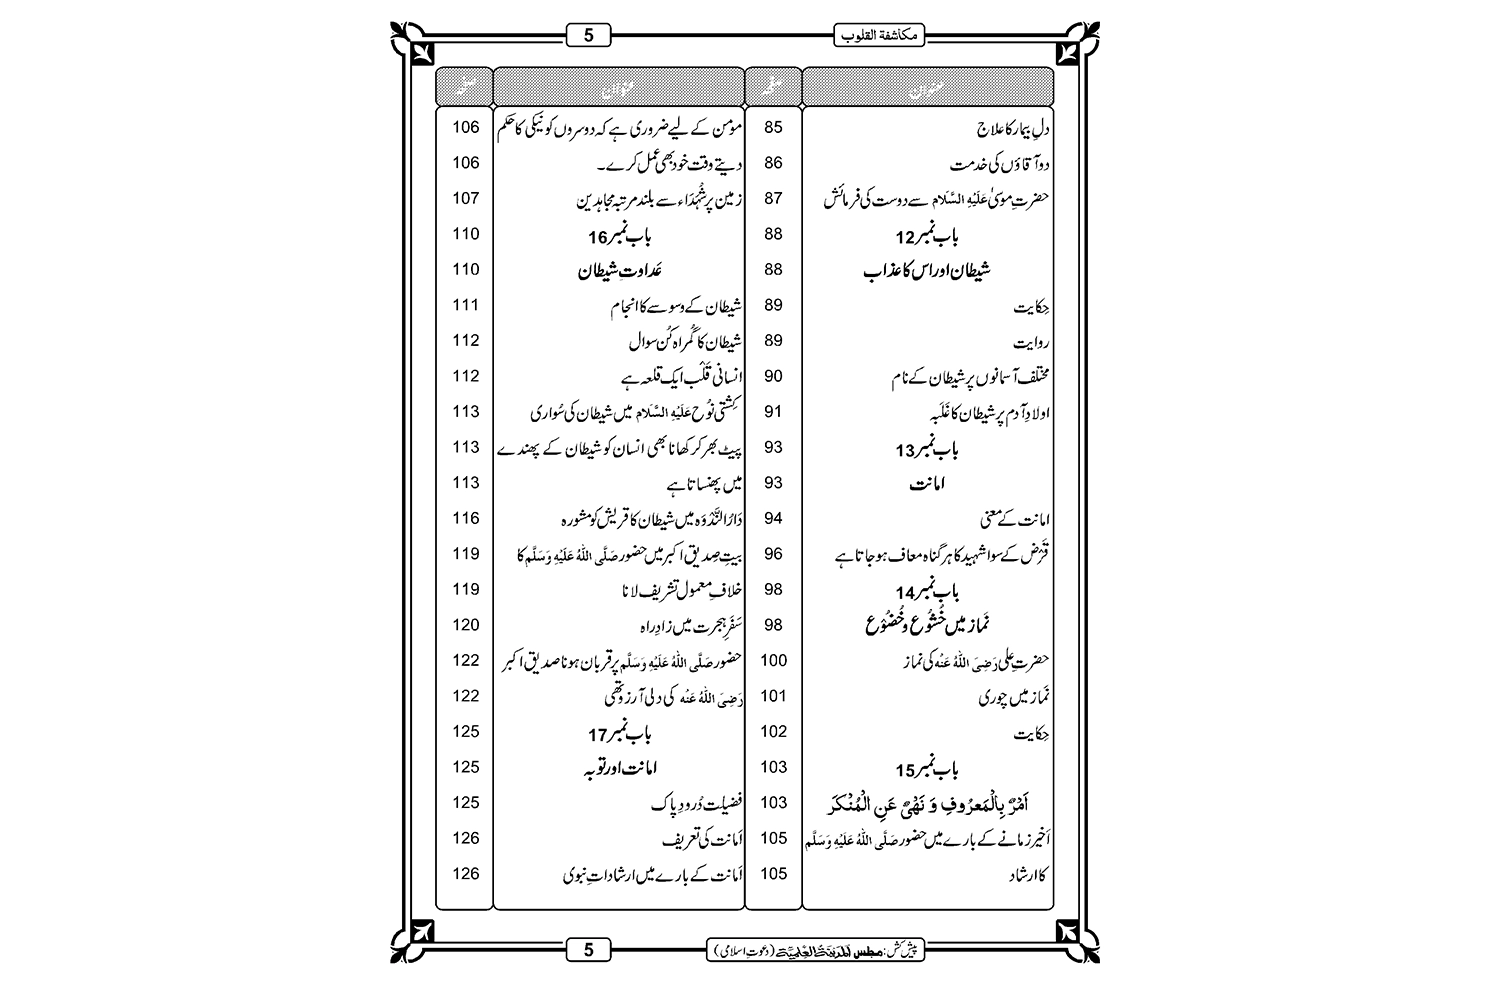 5 مکاشفۃ القلوب
عنوان صفحہ
دلِ بیمار کا علاج 85
دو آقاؤں کی خدمت 86
حضرتِ موسیٰ عَلَیْہِ السَّلَام سے دوست کی فرمائش 87
باب نمبر 12 88
شیطان اور اس کا عذاب 88
حِکایت 89
روایت 89
مختلف آسمانوں پر شیطان کے نام 90
اولادِ آدم پر شیطان کا غَلَبہ 91
باب نمبر 13 93
امانت 93
امانت کے معنی 94
قَرْض کے سوا شہید کا ہر گناہ معاف ہو جاتا ہے 96
باب نمبر 14 98
نَماز میں خُشُوْع و خُضُوْع 98
حضرتِ علی رَضِیَ اللّٰہُ عَنْہ کی نماز 100
نَماز میں چوری 101
حِکایت 102
باب نمبر 15 103
اَمْرٌ بِالْمَعْرُوفِ وَ نَھْیٌ عَنِ الْمُنْکَر 103
اَخیر زمانے کے بارے میں حضور صَلَّی اللّٰہُ عَلَیْہِ وَسَلَّم 105
کا ارشاد 105
عنوان صفحہ
مومن کے لیے ضروری ہے کہ دوسروں کو نیکی کا حکم 106
دیتے وقت خود بھی عمل کرے۔ 106
زمین پر شُہَدَاء سے بلند مرتبہ مجاہدین 107
باب نمبر 16 110
عَداوتِ شیطان 110
شیطان کے وسوسے کا انجام 111
شیطان کا گُمراہ کُن سوال 112
انسانی قَلْب ایک قلعہ ہے 112
کِشتی نُوْح عَلَیْہِ السَّلَام میں شیطان کی سُواری 113
پیٹ بھر کر کھانا بھی انسان کو شیطان کے پھندے 113
میں پھنساتا ہے 113
دَارُ النَّدْوَہ میں شیطان کا قریش کو مشورہ 116
بیتِ صِدیق اکبر میں حضور صَلَّی اللّٰہُ عَلَیْہِ وَسَلَّم کا 119
خلافِ معمول تشریف لانا 119
سَفَرِ ہجرت میں زادِ راہ 120
حضور صَلَّی اللّٰہُ عَلَیْہِ وَسَلَّم پر قربان ہونا صدیق اکبر 122
رَضِیَ اللّٰہُ عَنْہ کی دلی آرزو تھی 122
باب نمبر 17 125
امانت اور توبہ 125
فضیلت دُرودِ پاک 125
اَمانت کی تعریف 126
اَمانت کے بارے میں ارشاداتِ نبوی 126
5 پیش کش: مجلس المدینۃ العلمیۃ (دعوتِ اسلامی)